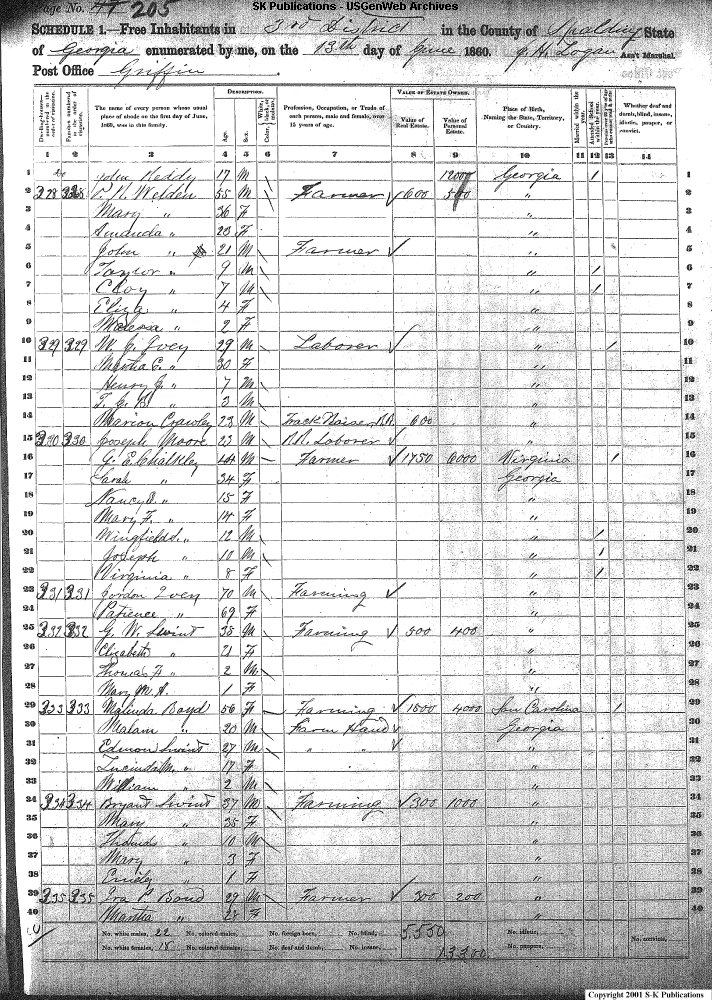 SK Publications - USGenWeb Archives
Page No. 205
SCHEDULE 1.—Free Inhabitants in 3rd District in the County of Spalding State
of Georgia enumerated by me, on the 13th day of June 1860. J. H. Logan Ass't Marshal.
Post Office Griffin
DESCRIPTION. VALUE OF ESTATE OWNED.
Dwelling-houses—numbered in the order of visitation. Families numbered in the order of visitation. The name of every person whose usual place of abode on the first day of June, 1860, was in this family. Age. Sex. Color. Profession, Occupation, or Trade of each person, male and female, over 15 years of age. Value of Real Estate. Value of Personal Estate. Place of Birth, Naming the State, Territory, or Country. Married within the year. Attended School within the year. Whether deaf and dumb, blind, insane, idiotic, pauper, or convict.
1 2 3 4 5 6 7 8 9 10 11 12 13 14
1 John Reddy 17 M 12000 Georgia / 1
2 328 P. H. Welden 55 M \ Farmer √ 600 500 " 2
3 Mary " 36 F " 3
4 Amanda " 23 F " 4
5 John " 21 M \ Farmer √ " 5
6 Taylor " 9 M \ " / 6
7 " 7 M \ " / 7
8 Eliza " 4 F " 8
9 " 2 F " 9
10 329 329 W. J. Ivey 29 M \ Laborer √ " / 10
11 Martha C. " 30 F " 11
12 Henry J. " 7 M \ " 12
13 " 3 M \ " 13
14 Marion Crawley 23 M \ Track Raiser R.R. 600 " 14
15 330 330 Joseph Moore 23 M \ R.R. Laborer √ " 15
16 G. E. Chalkley 44 M Farmer √ 1750 6000 Virginia / 16
17 Sarah " 34 F Georgia 17
18 Nancy " 15 F " 18
19 Mary F. " 14 F " 19
20 Wingfield " 12 M \ " / 20
21 Joseph " 10 M \ " / 21
22 Virginia " 8 F " / 22
23 331 331 Jordon Ivey 70 M \ Farming √ " 23
24 Patience " 69 F " 24
25 332 332 G. W. Swint 35 M \ Farming √ 500 400 " 25
26 Elizabeth " 21 F " 26
27 Thomas F " 2 M \ " 27
28 Mary M. A. 1 F " 28
29 333 333 Malinda Boyd 56 F Farming √ 1500 4000 So. Carolina / 29
30 " 20 M \ Farm Hand √ Georgia 30
31 Edmon Swint 27 M \ " " √ " 31
32 Lucinda M. " 17 F " 32
33 William " 2 M \ " 33
34 334 334 Bryant Swint 37 M \ Farming √ 300 1000 " 34
35 Mary " 35 F " 35
36 Thomas " 10 M \ " 36
37 Mary " 3 F " 37
38 Emily " 1 F " 38
39 335 335 Ira P. Bond 29 M \ Farmer √ 300 200 " 39
40 Martha " 28 F " 40
No. white males, 22 No. colored males, No. foreign born, No. blind, 5,550 No. idiotic,
No. white females, 18 No. colored females, No. deaf and dumb, No. insane, No. paupers, No. convicts,
Copyright 2001 S-K Publications